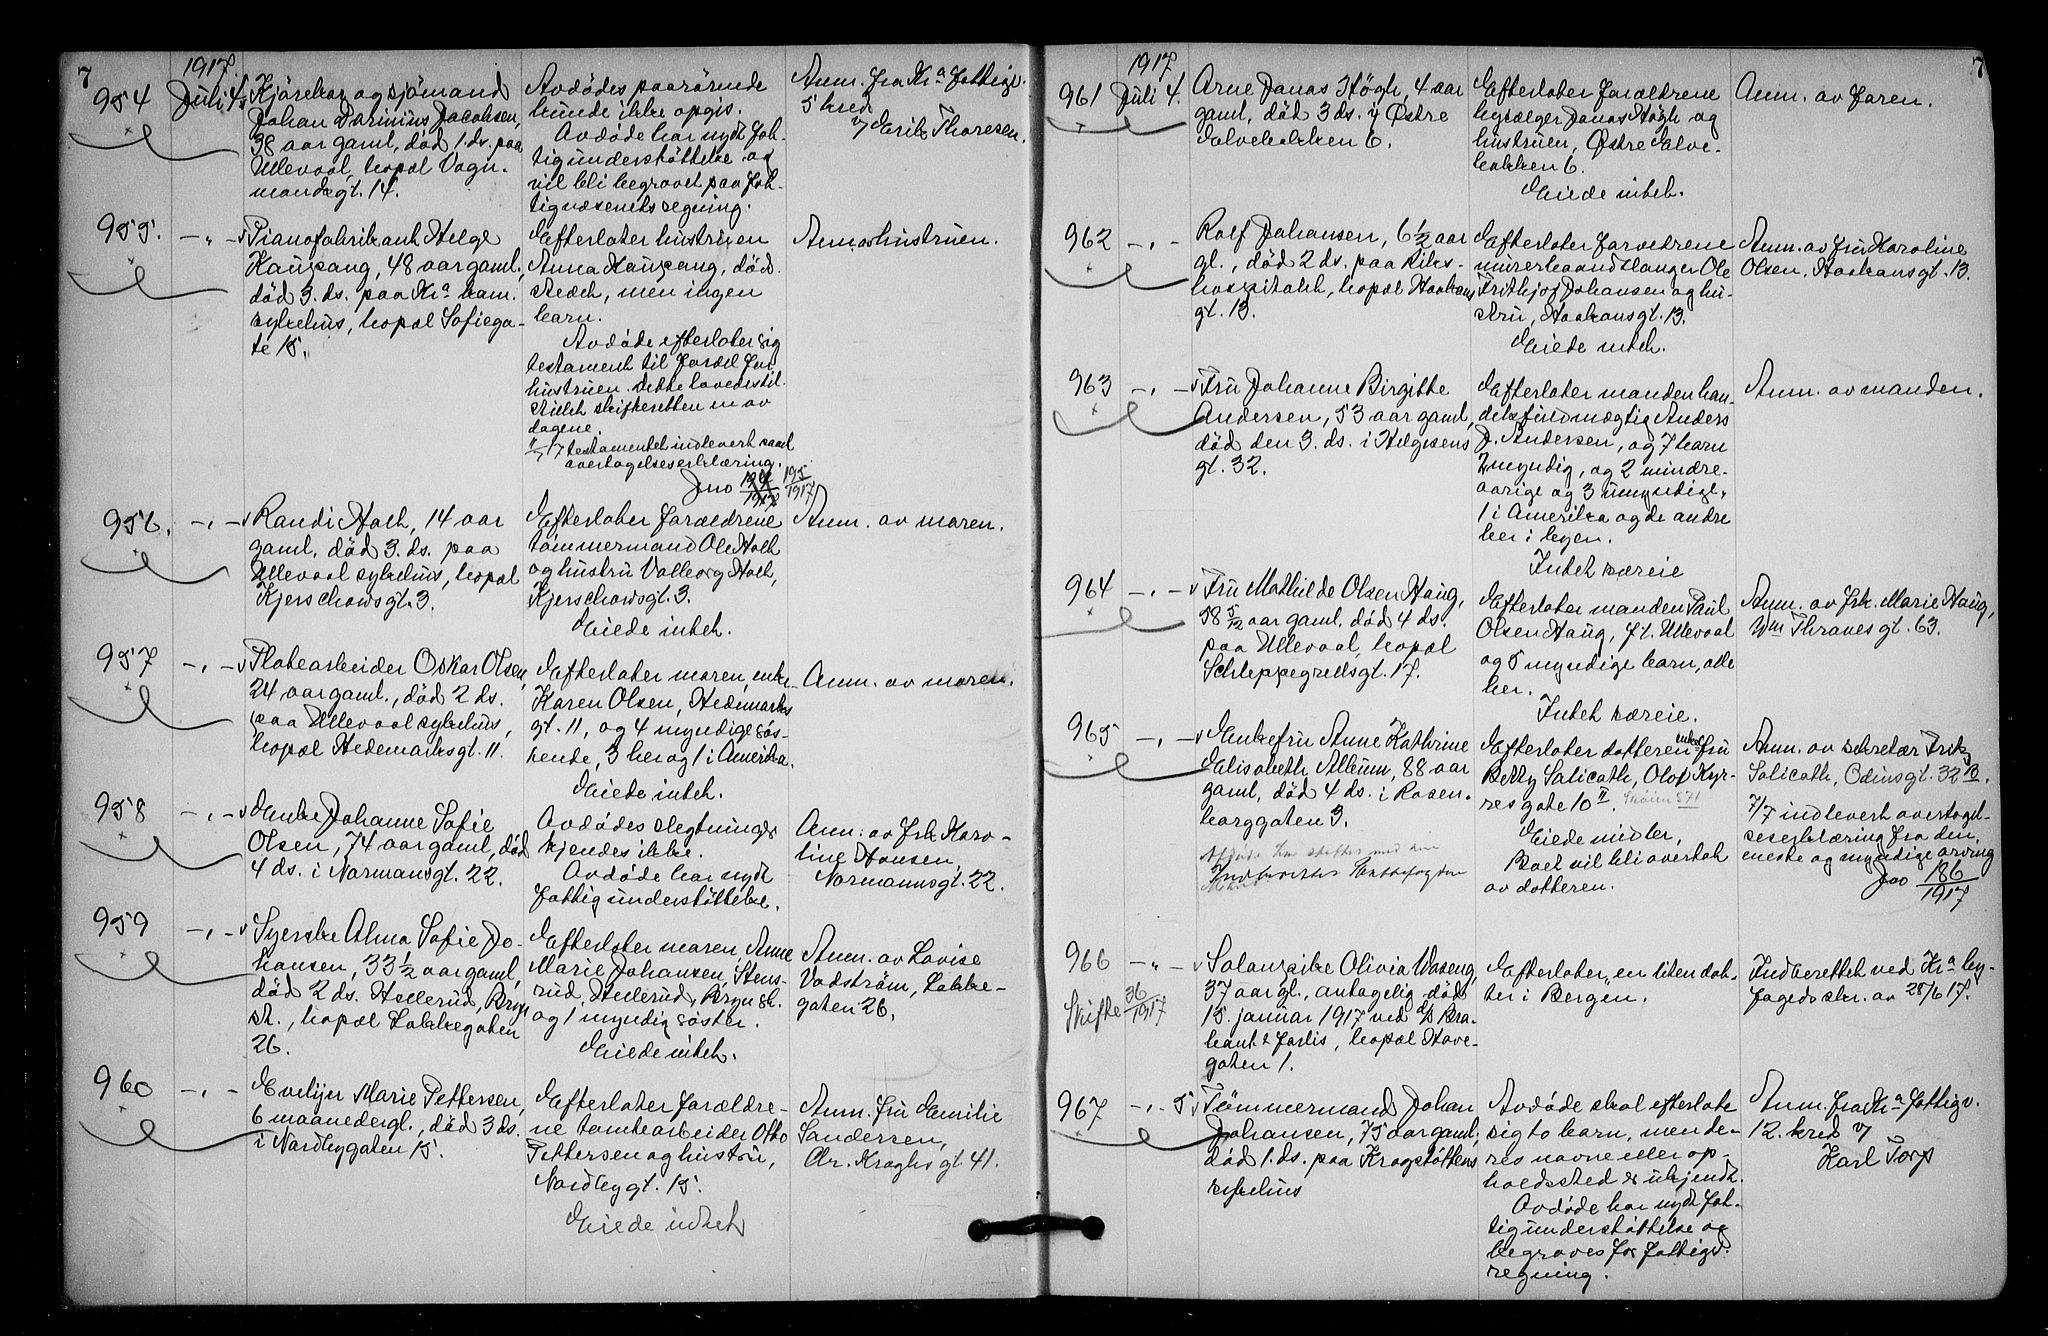 7
1917.
954
Juli 4.
Kjørekar og sjømand
Johan Darinius Jacobsen,
38 aar gaml, død 1. ds. paa
Ullevaal, bopæl Vogn-
mandsgt. 14.
Avdødes paarørende
kunde ikke opgis.
Avdøde har nydt fat-
tigunderstøttelse og
vil bli begravet paa fat-
tigvæsenets regning.
Anm. fra Kr.a fattigv.
5 kred
v/ Erik Thoresen.
955.
—„—
Pianofabrikant Helge
Kaupang, 48 aar gaml.,
død 3. ds. paa Kr.a kom.
sykehus, bopæl Sofiega-
te 15.
Efterlater hustruen
Anna Kaupang, død.
sted, men ingen
barn.
Avdøde efterlater sig
testament til fordel for
hustruen. Dette lovedes til-
stillet skifteretten en av
dagene.
11/7 17 testamentet indlevert samt
overtagelseserklæring.
Jno 195/1917
Anm. hustruen.
956.
—„—
Randi Holt, 14 aar
gaml, død 3. ds. paa
Ullevaal sykehus, bopæl
Kjerschowsgt. 3.
Efterlater forældrene
tømmermand Ole Holt
og hustru Valborg Holt,
Kjerschowsgt. 3.
Eiede intet.
Anm. av moren.
957
—„—
Platearbeider Oskar Olsen,
24 aar gaml., død 2 ds.
paa Ullevaal sykehus,
bopæl Hedemarksgt. 11.
Efterlater moren, enke
Karen Olsen, Hedemarks
gt. 11, og 4 myndige søs-
kende, 3 her og 1 i Amerika.
Eiede intet.
Anm. av moren.
958
—„—
Enke Johanne Sofie
Olsen, 74 aar gaml, død
4 ds. i Normansgt. 22.
Avdødes slegtninger
kjendes ikke.
Avdøde har nydt
fattigunderstøttelse.
Anm. av frk Karo-
line Hansen,
Normannsgt. 22.
959
—„—
Syerske Alma Sofie Jo-
hansen, 33 1/2 aar gaml,
død 2 ds. Hellerud, Bryn
st., bopæl Lakkegaten
26.
Efterlater moren, Anne
Marie Johansen, Stens-
rud, Hellerud, Bryn st.
og 1 myndig søster.
Eiede intet.
Anm. av Lovise
Vadstrøm, Lakke-
gaten 26.
960
—„—
Evelyn Marie Pettersen,
6 maaneder gl., død 3 ds.
i Nordbygaten 15.
Efterlater forældre-
ne tomtearbeider Otto
Pettersen og hustru,
Nordbygt. 15.
Eiede intet
Anm. fru Emilie
Sandersen,
Chr. Kroghs gt. 41.
7
1917
961
Juli 4.
Arne Jonas Høgh, 4 aar
gaml, død 3 ds. i Østre
Elvebakken 6.
Efterlater forældrene
Jonas Høgh og
hustruen, Østre Elve-
bakken 6.
Eiede intet.
Anm. av faren.
962
—„—
Rolf Johansen, 6 1/2 aar
gl., død 2 ds. paa Riks-
hospitalet, bopæl Haakons
gt. 13.
Efterlater forældrene
murerhaandlanger Ole
Fritkjof Johansen og hu-
stru, Haakonsgt. 13.
Eiede intet.
Anm. av fru Karoline
Olsen, Haakonsgt. 13.
963
—„—
Fru Johanne Birgitte
Andersen, 53 aar gaml,
død den 3. ds. i Helgesens
gt. 32.
Efterlater manden han-
delsfuldmægtig Anders
J. Andersen, og 7 barn
2 myndig, og 2 mindre-
aarige og 3 umyndige,
1 i Amerika og de andre
her i byen.
Intet særeie
Anm. av manden.
964
—„—
Fru Mathilde Olsen Haug,
58 5/12 aar gaml. død 4 ds.
paa Ullevaal, bopæl
Schleppegrellsgt. 17.
Efterlater manden Paul
Olsen Haug, f.t. Ullevaal
og 5 myndige barn, alle
her.
Intet særeie.
Anm. av frk. Marie Haug,
Ths Thranes gt. 63.
965
—„—
Enkefru Anne Kathrine
Elisabeth Album, 88 aar
gaml, død 4 ds. i Rosen-
borggaten 3.
Efterlater datteren enke fru
Betzy Salicath, Olaf Kyr-
resgate 10 II.
Eiede midler,
Boet vil bli overtat
av datteren.
Anm. av sekretær Fritz
Salicath, Odinsgt. 32 B.
7/7 indlevert overtagel-
seserklæring fra den
eneste og myndige arving
Jno 186/1917
966
—„—
Skifte 36/1917
Salonpike Olivia Waseng,
37 aar gl., antagelig død
15. januar 1917 ved d/s Bra-
bant's forlis, bopæl Have-
gaten 1.
Efterlater „en liten dat-
ter i Bergen.
Indberettet ved Kr.a by-
fogeds skr. av 28/6 17.
967
—„— 5.
Tømmermand Johan
Johansen, 75 aar gaml,
død 1. ds. paa Krogstøttens
sykehus
Avdøde skal efterlate
sig to barn, men de-
res navne eller op-
holdssted er ukjendt.
Avdøde har nydt fat-
tigunderstøttelse og
begraves for fattigv.
regning.
Anm. fra Kr.a fattigv.
12. kred v/
Karl Torp